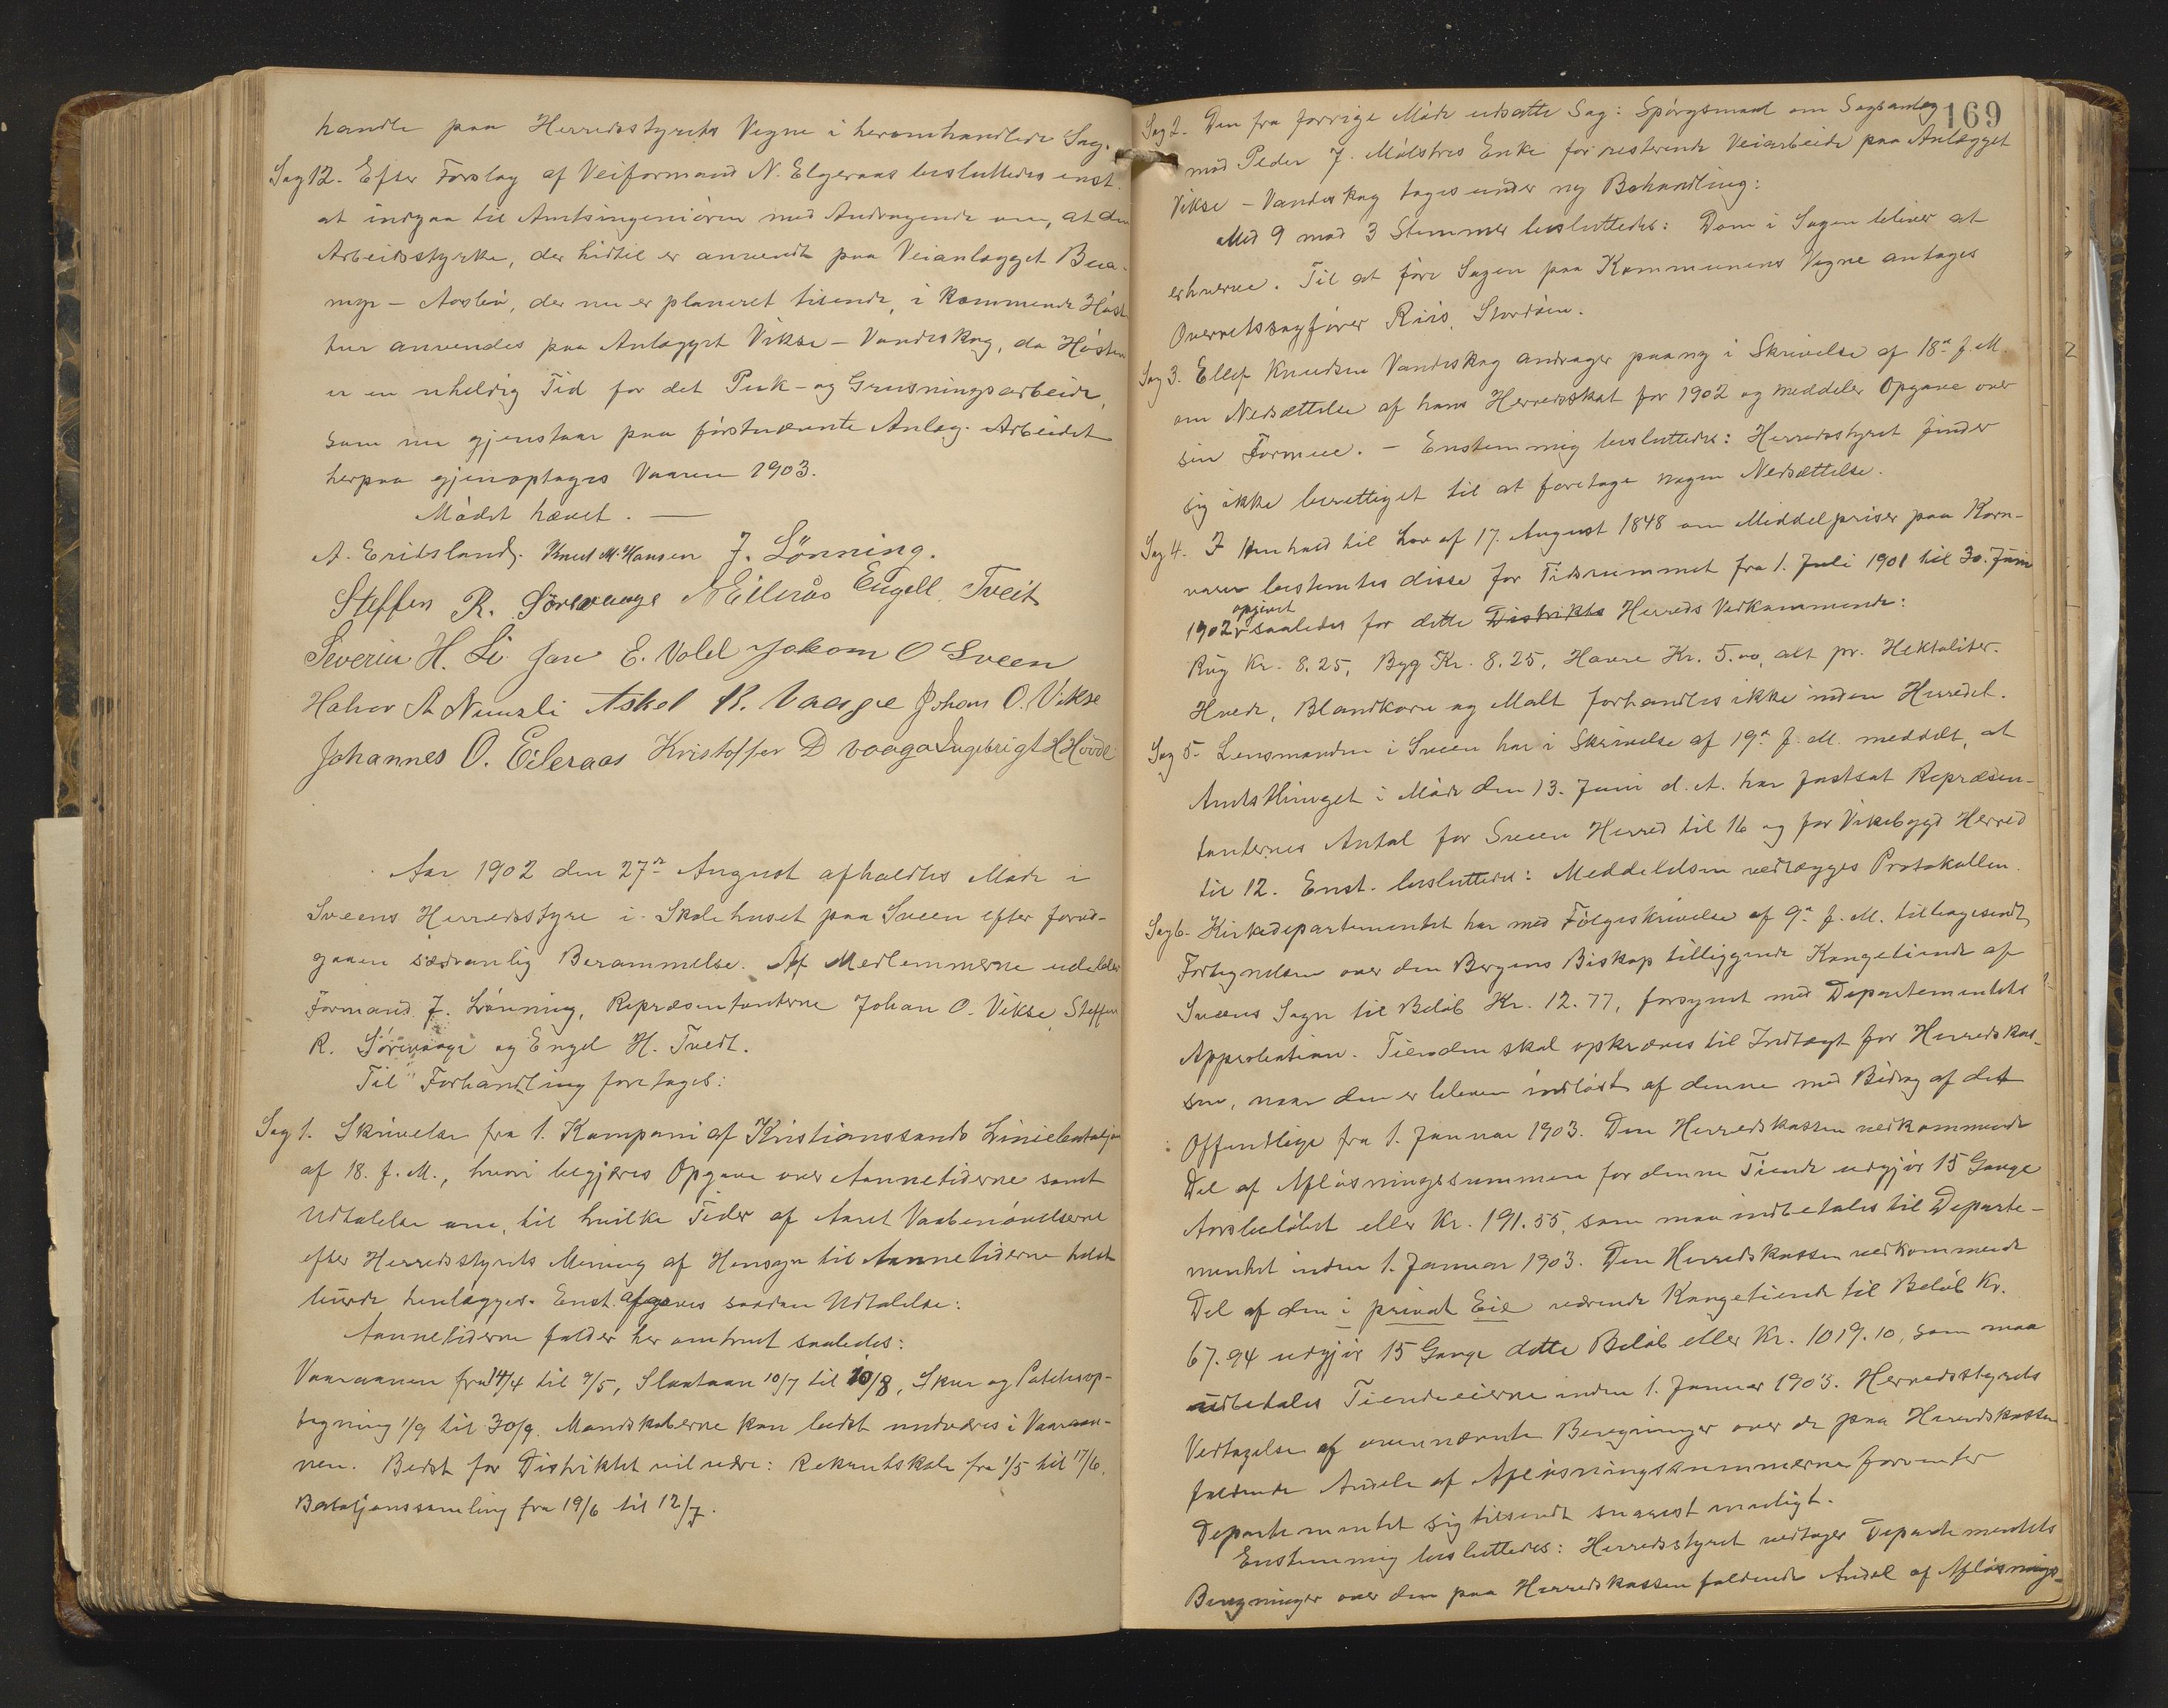 handle paa Herredsstyrets Vegne i heromhandlede Sag.
Sag 12. Efter Forslag af Veiformand N. Elgeraas besluttedes enst.
at indgaa til Amtsingeniøren med Andragende om, at den
Arbeidsstyrke, der hidtil er anvendt paa Veianlægget Bua-
myr – Aarsbø, der nu er planeret tilende, i kommende Høst
bør anvendes paa Anlægget Vikse – Vandeskog, da Høsten
er en uheldig Tid for det Puk- og Grusningsarbeide,
som nu gjenstaar paa førstnævnte Anlæg. Arbeidet
herpaa gjenoptages Vaaren 1903.
Mødet hævet. —
A. Eridsland. Knut M. Hansen J. Lönning.
Steffen R. Sörevaage N Eilerås Engell Tveit
Severin H. Li Jan E. Vold Jakom O Sveen
Halvor A Nunsli Askel R. Vaage Johan O. Vikse
Johannes O. Eileraas Kristoffer D vaaga Ingebrigt H Hovde
Aar 1902 den 27de August afholdtes Møde i
Sveens Herredsstyre i Skolehuset paa Sveen efter forud-
gaaen sædvanlig Berammelse. Af Medlemmerne udeblev
Formand J. Lönning, Repræsentanterne Johan O. Vikse, Steffen
R. Sörevaage og Engel H. Tvedt.
Til Forhandling foretages:
Sag 1. Skrivelse fra 1. Kompani af Kristianssands Liniebataljon
af 18. f. M., hvori begjæres Opgave over Aannetiderne samt
Udtalelse om, til hvilke Tider af Aaret Vaabenøvelserne
efter Herredsstyrets Mening af Hensyn til Aannetiderne helst
burde henlægges. Enst. afgaves saadan Udtalelse:
Aannetiderne falder her omtrent saaledes:
Vaaraannen fra 14/4 til 9/5, Slaataan 10/7 til 10/8, Skur og Potetesop-
tagning 1/9 til 30/9. Mandskaberne kan bedst undværes i Vaaraan-
nen. Bedst for Distriktet vil være: Rekrutskole fra 1/5 til 17/6.
Bataljonssamling fra 19/6 til 12/7.
169
Sag 2. Den fra forrige Møde udsatte Sag: Spørgsmaal om Sagsanlæg
mod Peder J. Mølstres Enke for resterende Veiarbeide paa Anlægget
Vikse – Vandeskog tages under ny Behandling:
Med 9 mod 3 Stemmer besluttedes: Dom i Sagen bliver at
erhverve. Til at føre Sagen paa Kommunens Vegne antages
Overretssagfører Riis, Stordøen.
Sag 3. Ellef Knudsen Vandeskog andrager paany i Skrivelse af 18de f. M.
om Nedsættelse af hans Herredsskat for 1902 og meddeler Opgave over
sin Formue. – Enstemmig besluttedes: Herredsstyret finder
sig ikke berettiget til at foretage nogen Nedsættelse.
Sag 4. I Henhold til Lov af 17. August 1848 om Middelpriser paa Korn-
varer bestemtes disse for Tidsrummet fra 1. Juli 1901 til 30. Juni
opgivet
1902 saaledes for dette Distrikts Herreds Vedkommende:
Rug Kr. 8.25, Byg Kr. 8.25, Havre Kr. 5.00, alt pr. Hektoliter.
Hvede, Blandkorn og Malt forhandles ikke inden Herredet.
Sag 5. Lensmanden i Sveen har i Skrivelse af 19de f. M. meddelt, at
Amtsthinget i Møde den 13. Juni d. A. har fastsat Repræsen-
tanternes Antal for Sveen Herred til 16 og for Vikebygd Herred
til 12. Enst. besluttedes: Meddelelsen vedlægges Protokollen.
Sag 6. Kirkedepartementet har med Følgeskrivelse af 9de f. M. tilbagesendt
Fortegnelsen over den Bergens Biskop tilliggende Kongetiende af
Sveens Sogn til Beløb Kr. 12.77, forsynet med Departementets
Approbation. Tienden skal opkræves til Indtægt for Herredskas-
sen, naar den er bleven indløst af denne med Bidrag af det
Offentlige fra 1. Januar 1903. Den Herredskassen vedkommende
Del af Afløsningssummen for denne Tiende udgjør 15 Gange
Aarsbeløbet eller Kr. 191.55, som maa indbetales til Departe-
mentet inden 1. Januar 1903. Den Herredskassen vedkommende
Del af den i privat Eie værende Kongetiende til Beløb Kr.
67.94 udgjør 15 Gange dette Beløb eller Kr. 1019.10, som maa
udbetales Tiendeeierne inden 1. Januar 1903. Herredsstyrets
Vedtagelse af ovennævnte Beregninger over de paa Herredskassen
faldende Andele af Afløsningssummerne forventer
Departementet sig tilsendt snarest muligt.
Enstemmig besluttedes: Herredsstyret vedtager Departementets
Beregninger over den paa Herredskassen faldende Andel af Afløsnings-